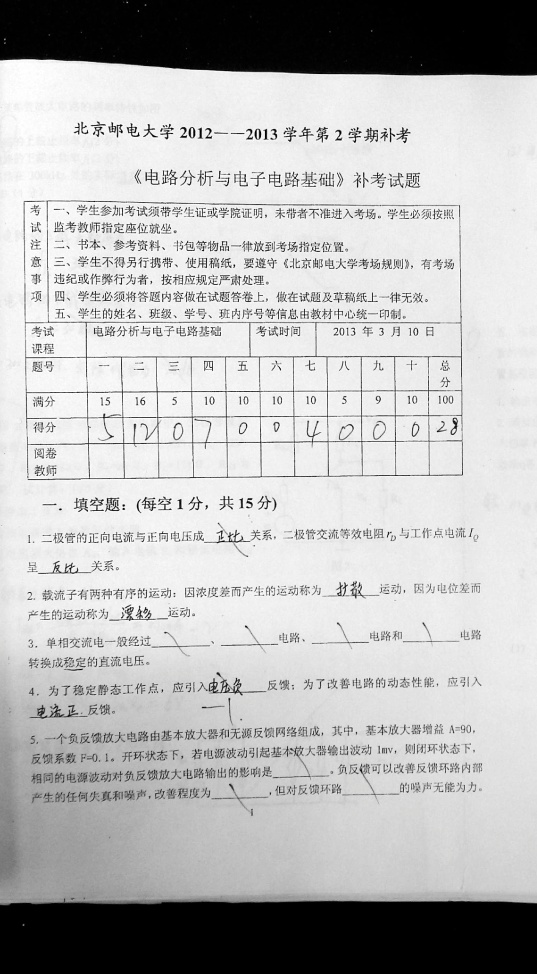 北京邮电大学 2012——2013 学年第 2 学期补考
《电路分析与电子电路基础》补考试题
考试注意事项
一、学生参加考试须带学生证或学院证明，未带者不准进入考场。学生必须按照
监考教师指定座位就坐。
二、书本、参考资料、书包等物品一律放到考场指定位置。
三、学生不得另行携带、使用稿纸，要遵守《北京邮电大学考场规则》，有考场
违纪或作弊行为者，按相应规定严肃处理。
四、学生必须将答题内容做在试题答卷上，做在试题及草稿纸上一律无效。
五、学生的姓名、班级、学号、班内序号等信息由教材中心统一印制。
考试课程 电路分析与电子电路基础 考试时间 2013 年 3 月 10 日
题号 一 二 三 四 五 六 七 八 九 十 总分
满分 15 16 5 10 10 10 10 5 9 10 100
得分 5 12 0 7 0 0 4 0 0 0 28
阅卷教师
一．填空题：(每空 1 分，共 15 分)
1. 二极管的正向电流与正向电压成 正比 关系，二极管交流等效电阻 rD 与工作点电流 IQ
呈 反比 关系。
2. 载流子有两种有序的运动：因浓度差而产生的运动称为 扩散 运动，因为电位差而
产生的运动称为 漂移 运动。
3. 单相交流电一般经过 、 电路、 电路和 电路
转换成稳定的直流电压。
4. 为了稳定静态工作点，应引入 电压负 反馈；为了改善电路的动态性能，应引入
电流正 反馈。
-1
5. 一个负反馈放大电路由基本放大器和无源反馈网络组成，其中，基本放大器增益 A=90，
反馈系数 F=0.1，开环状态下，若电源波动引起基本放大器输出波动 1mv，则闭环状态下，
相同的电源波动对负反馈放大电路输出的影响是 。负反馈可以改善反馈环路内部
产生的任何失真和噪声，改善程度为 ，但对反馈环路 的噪声无能为力。
1